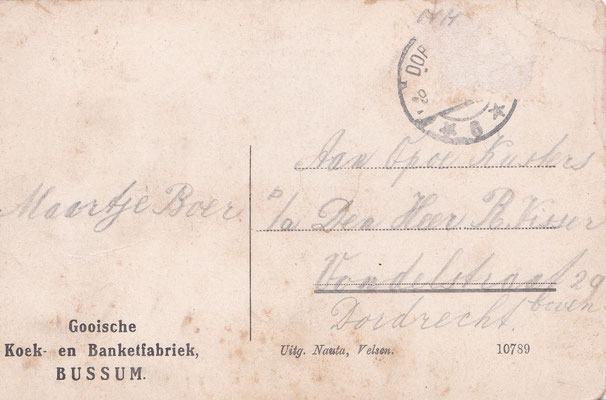 DOR
6
Maartje Boer
Aan Opoe Kusters
p/a Den Heer R. Visser
Vondelstraat 29
boven
Dordrecht
Gooische
Koek- en Banketfabriek,
BUSSUM.
Uitg. Nauta, Velsen.
10789